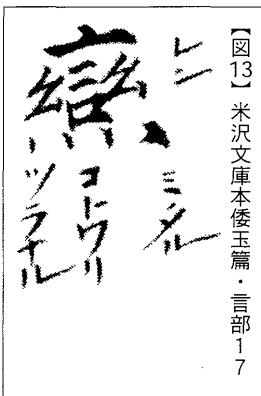 【図13】 米沢文庫本倭玉篇・言部17
レン
䜌
ミタル
コトワリ
ツラナル